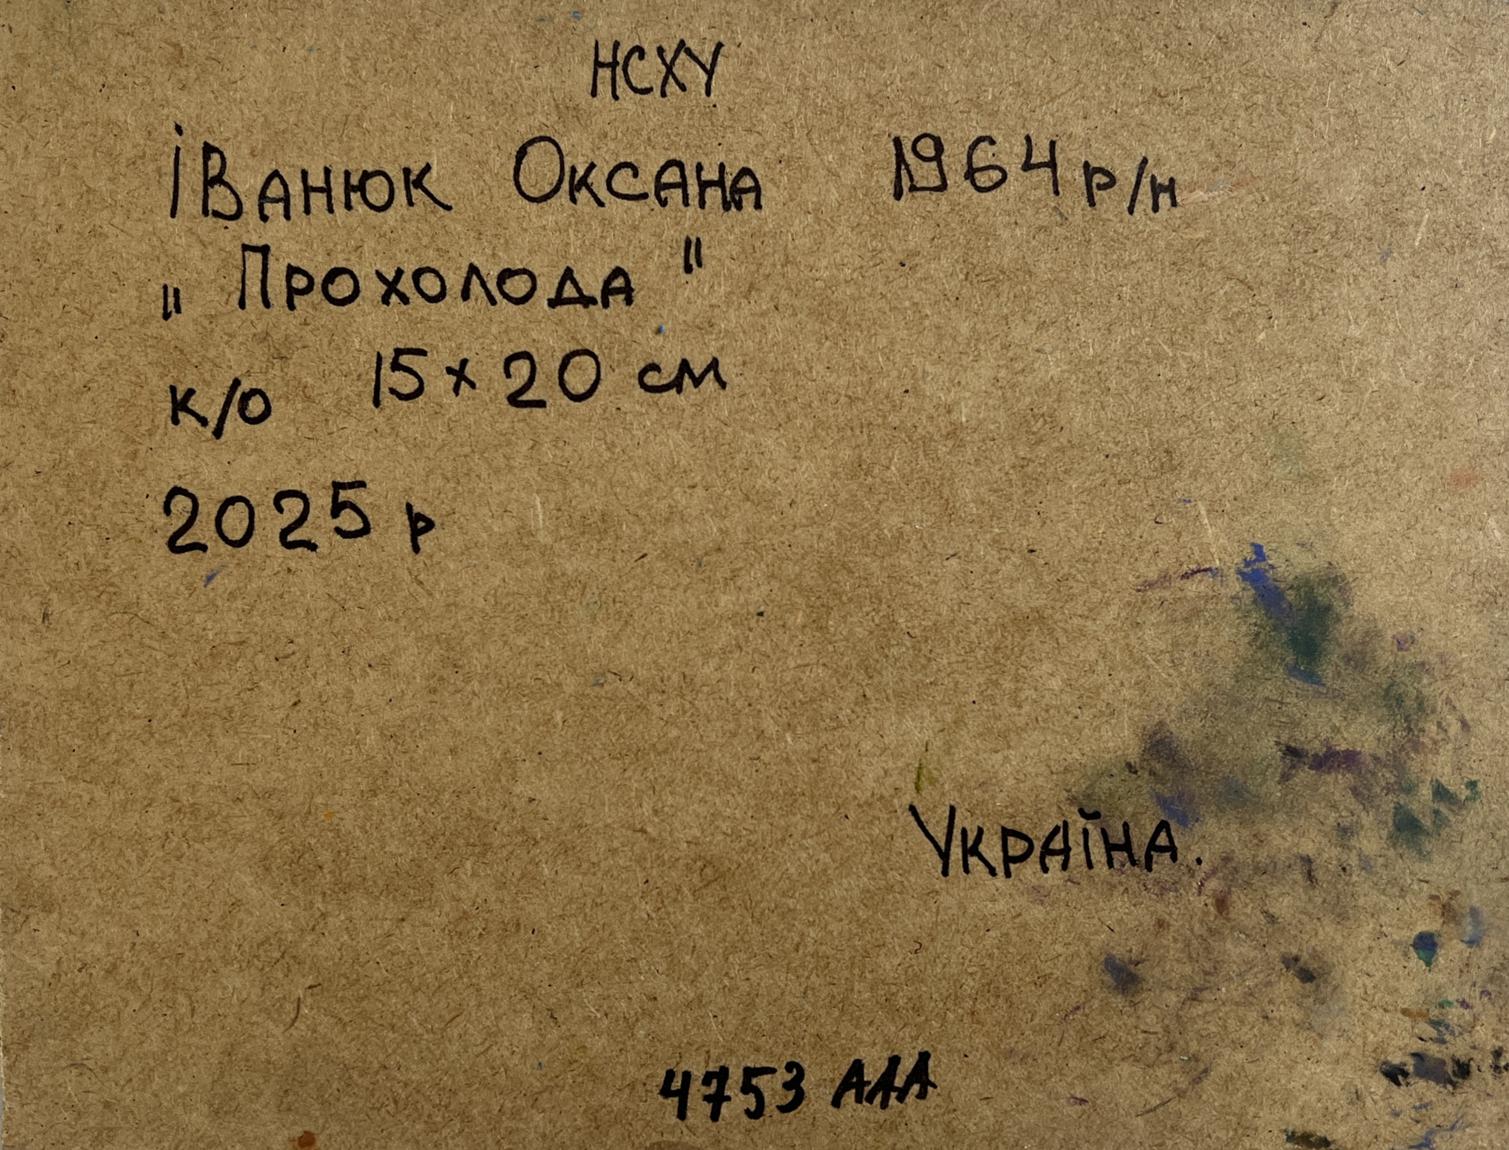 НСХУ
Іванюк Оксана 1964 р/н
„Прохолода"
к/о 15×20 см
2025 р
Україна.
4753 ААА